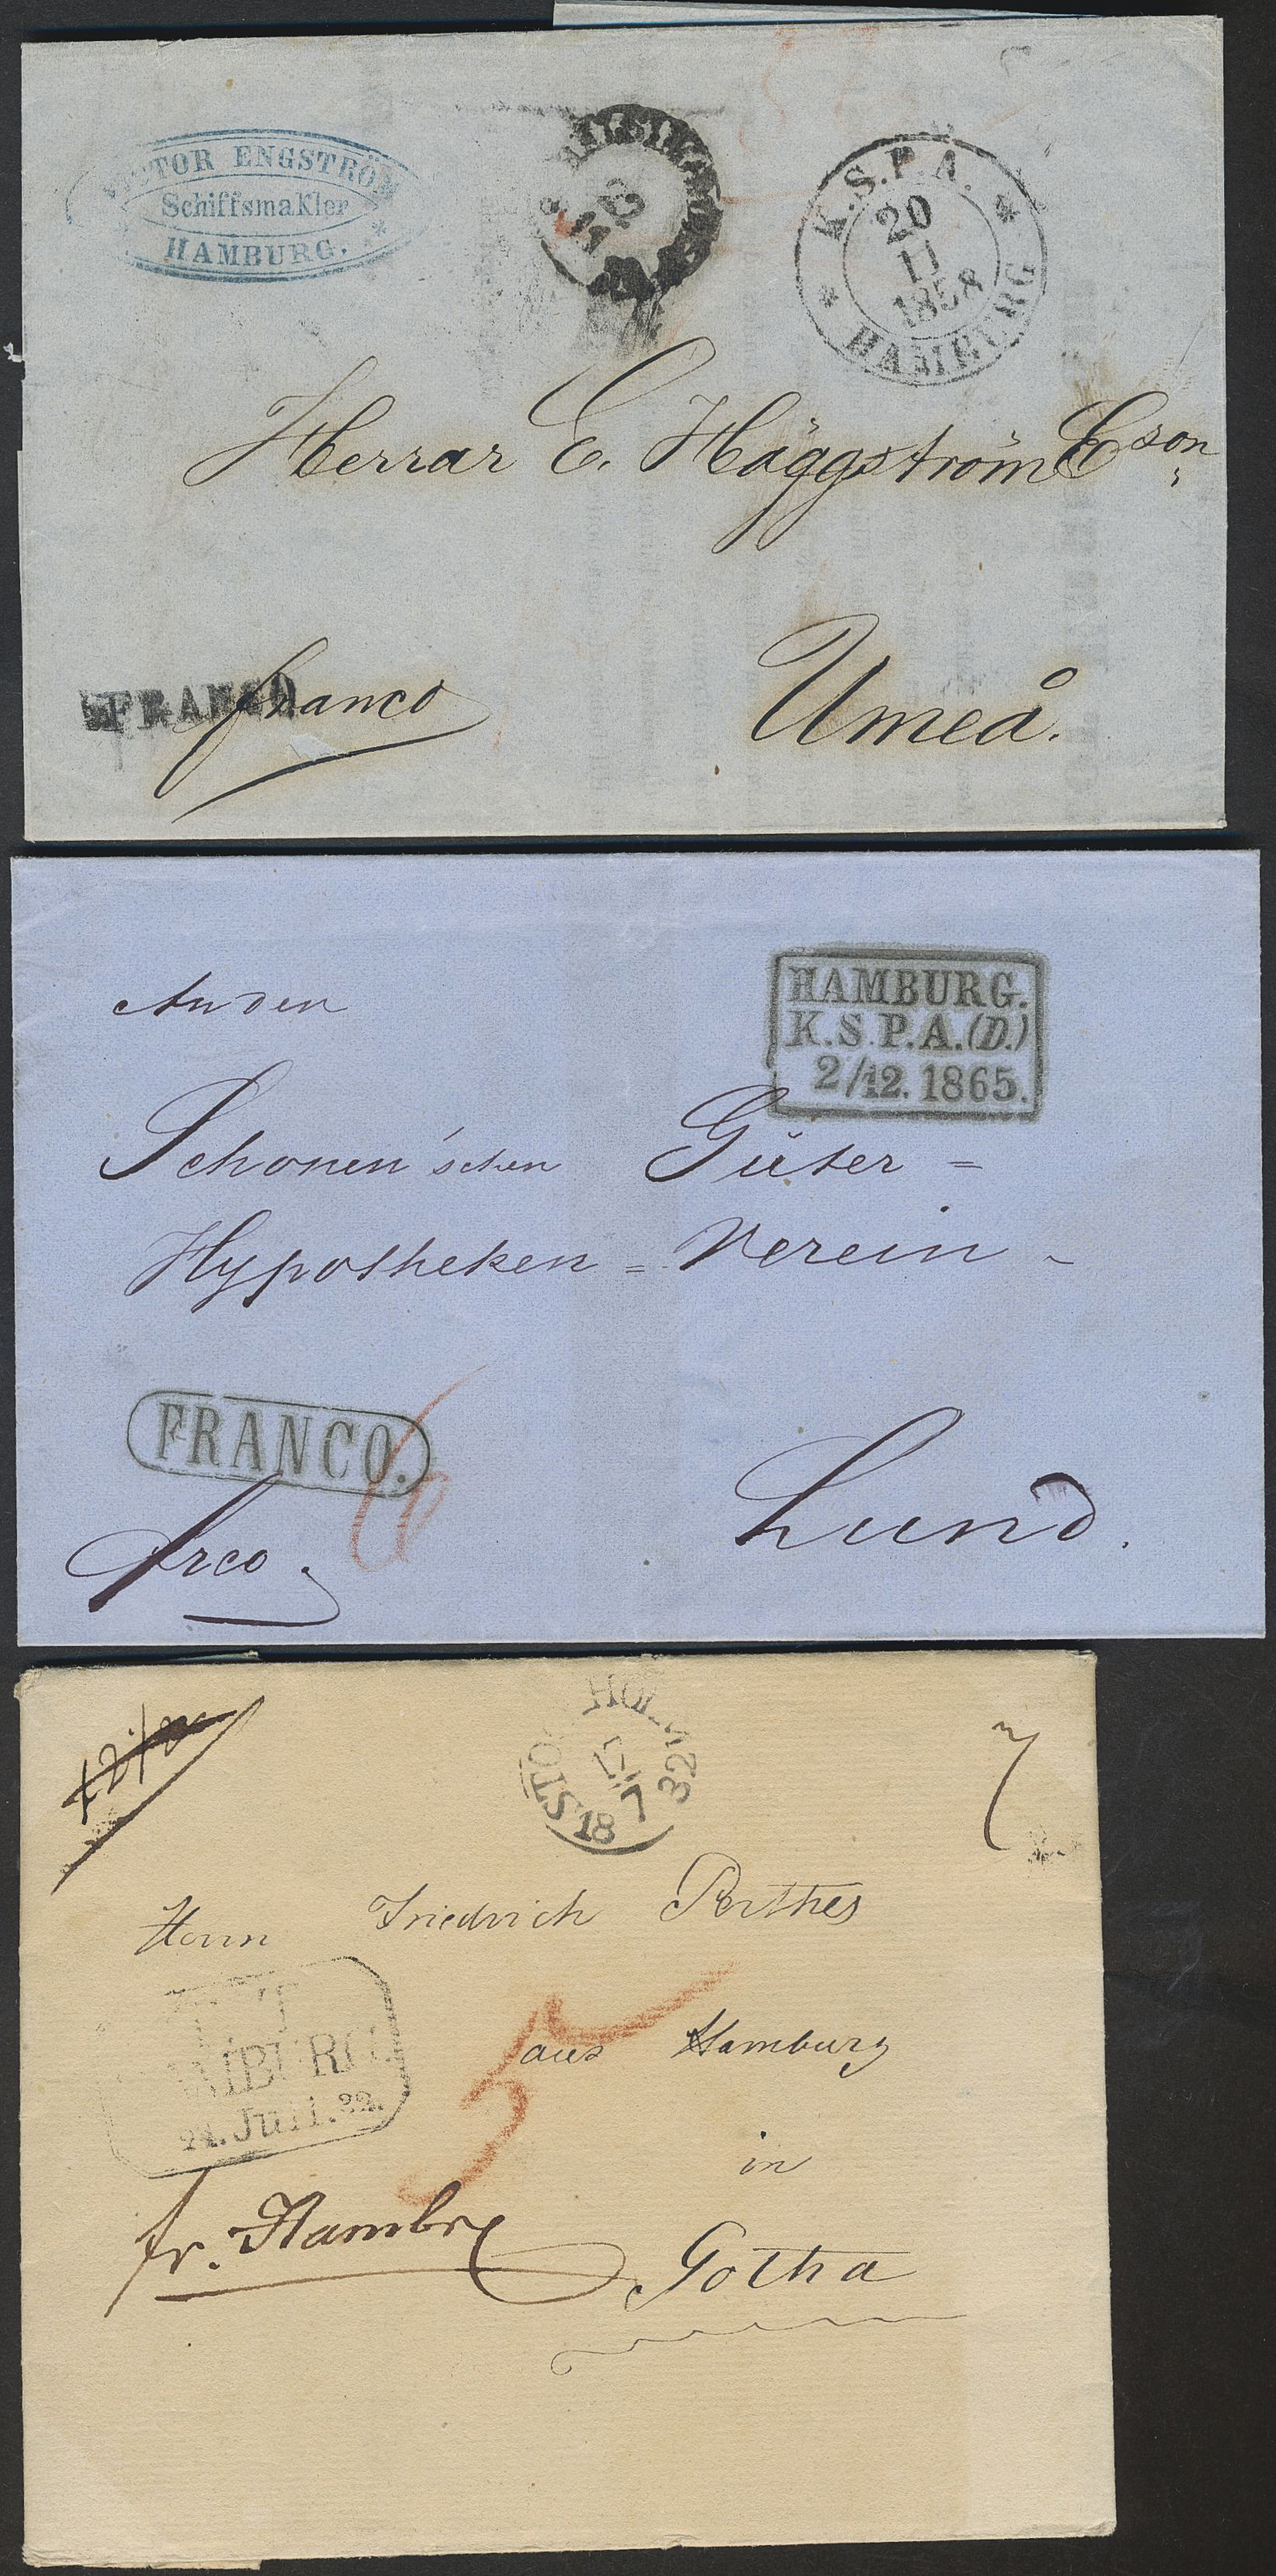 VICTOR ENGSTRÖM
Schiffsmakler
HAMBURG.
K.S.P.A.
20
11
1858
HAMBURG
Herrar E. Häggström & son
FRANCO
franco
Umeå.
HAMBURG.
K.S.P.A.(D.)
2/12. 1865.
An den
Schonen'schen Güter=
Hypotheken=Verein
FRANCO.
6
frco.
Lund.
STOCKHOLM
17
7
18 32
7
Herrn Friedrich Perthes
aus Hamburg
HAMBURG
24. Juli. 32.
in
fr. Hambrg
Gotha